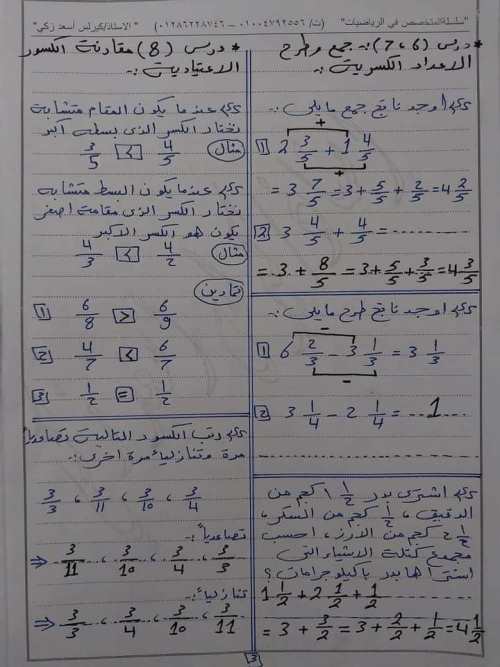 "سلسلة المتخصص في الرياضيات" (ت/ ٠١٠٠٤٧٩٢٥٥٦ – ٠١٢٨٦٢٢٨٧٤٦) "الاستاذ/كيرلس أسعد زكي"
* درس (6، 7):- جمع وطرح
الاعداد الكسرية :-
أوجد ناتج جمع ما يلى :-
+
1 2 3/5 + 1 4/5
+
= 3 7/5 = 3 + 5/5 + 2/5 = 4 2/5
2 3 4/5 + 4/5 = ........
= 3 + 8/5 = 3 + 5/5 + 3/5 = 4 3/5
أوجد ناتج طرح ما يلى :-
-
1 6 2/3 - 3 1/3 = 3 1/3
-
2 3 1/4 - 2 1/4 = 1
اشترى بدر 1 1/2 كجم من
الدقيق، 1/2 كجم من السكر،
2 1/2 كجم من الارز، احسب
مجموع كتلة الاشياء التى
اشتراها بدر بالكيلوجرامات ؟
1 1/2 + 2 1/2 + 1/2
= 3 + 3/2 = 3 + 2/2 + 1/2 = 4 1/2
* درس (8) مقارنة الكسور
الاعتيادية :-
عندما يكون المقام متشابة
نختار الكسر الذى بسطه اكبر
مثال 4/5 > 3/5
عندما يكون البسط متشابة
نختار الكسر الذى مقامة اصغر
يكون هو الكسر الاكبر
مثال 4/2 > 4/3
تمارين
1 6/8 > 6/9
2 4/7 < 6/7
3 1/2 = 1/2
رتب الكسور التالية تصاعديا
مرة وتنازليا مرة اخرى :-
3/3 ، 3/11 ، 3/10 ، 3/4
تصاعدياً :-
⇒ 3/11 ، 3/10 ، 3/4 ، 3/3
تنازلياً :-
⇒ 3/3 ، 3/4 ، 3/10 ، 3/11
3